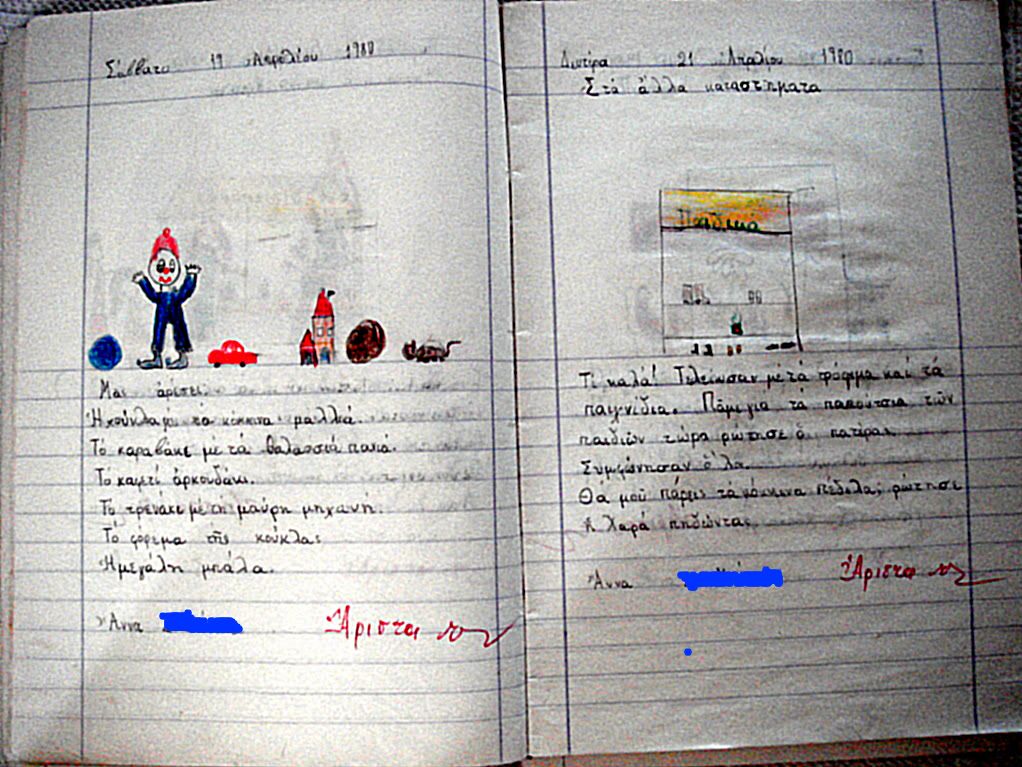 Σάββατο 19 Ἀπριλίου 1980
Μας ἀρέσει:
Ἡ κούκλα μέ τα κόκκινα μαλλιά.
Τό καραβάκι μέ τά θαλασσιά πανιά.
Τό καφετί ἀρκουδάκι.
Το τρενάκι μέ τή μαύρη μηχανή.
Τό φόρεμα τῆς κούκλας
Ἡ μεγάλη μπάλα.
Ἄννα
Ἄριστα 10
Δευτέρα 21 Ἀπριλίου 1980
Στά ἄλλα καταστήματα
Παιδικά
Τί καλά! Τελείωσαν μέ τά φόρεμα καί τά
παιχνίδια. Πάμε για τά παπούτσια τῶν
παιδιῶν τώρα ρώτησε ὁ πατέρας.
Συμφώνησαν ὅλα.
Θά μοῦ πάρεις τά κόκκινα πέδιλα; ρώτησε
ἡ Χαρά πηδώντας
Ἄννα
Ἄριστα 10